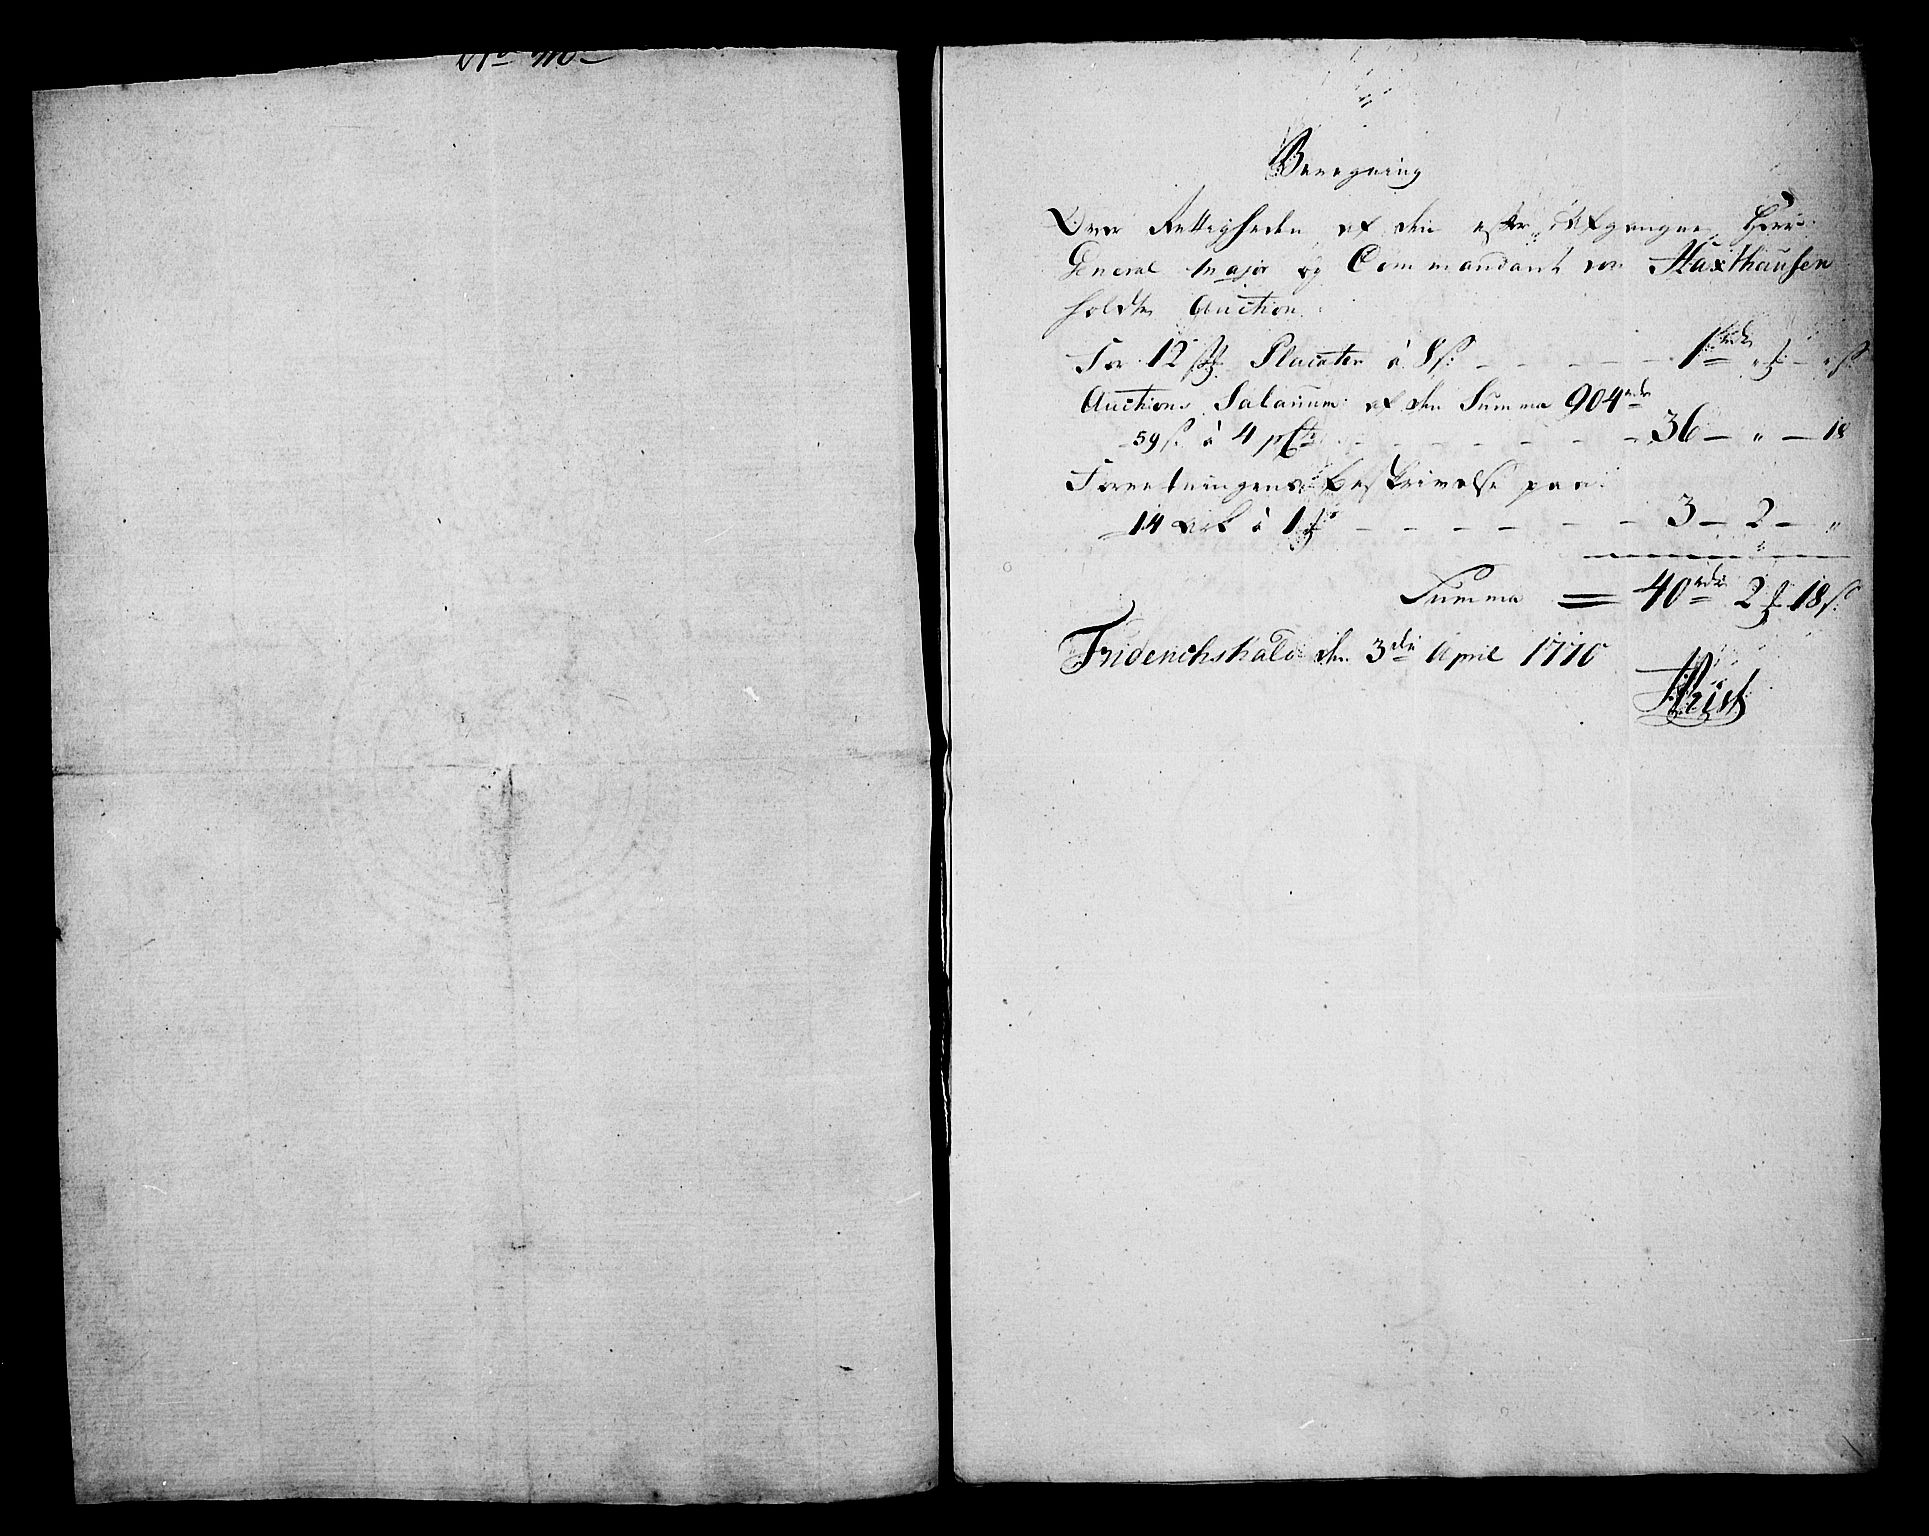 Beregning
Over Rettigheden af den efter Afgangne Herr
General Major og Commandant von Haxthausen
holdte Auction.
For 12 st: Placater à 8 s: - - - - - 1 rdr " - "
Auctions Salarium af den Summa 904 rdr
59 s. à 4 pCt - - - - - - - 36 - " - 18
Forretningens beskrivelse paa
14 ark à 1 - - - - - - - 3 - 2 - "
Summa = 40 rdr 2 18 s:
Friderichshald den 3die April 1770